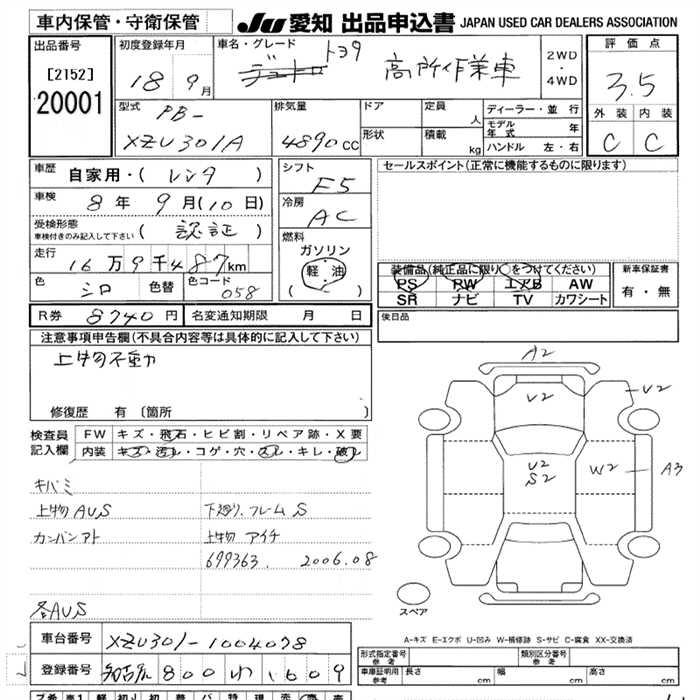 車内保管・守衛保管 JU 愛知 出品申込書 JAPAN USED CAR DEALERS ASSOCIATION
出品番号 [2152] 20001
初度登録年月 18 9月
車名・グレード トヨタ デュトロ 高所作業車
2WD ・ 4WD
評価点 3.5
外装 内装
C C
型式 PB-XZU301A
排気量 4890cc
ドア
形状
定員 人
積載 kg
ディーラー・並行
モデル年式 年
ハンドル 左・右
車歴 自家用・(レンタ)
車検 8年9月(10日)
受検形態 車検付きのみ記入して下さい (認証)
走行 16万9千487km
色 シロ 色替 色コード 058
シフト F5
冷房 AC
燃料 ガソリン 軽・油 ( )
セールスポイント(正常に機能するものに限ります)
装備品(純正品に限り○をつけてください)
PS PW エアB AW
SR ナビ TV カワシート
新車保証書 有・無
R券 8740円
名変通知期限 月 日
後日品
注意事項申告欄(不具合内容等は具体的に記入して下さい)
上物不動
修復歴 有 〔箇所 〕
検査員記入欄
FW キズ・飛石・ヒビ割・リペア跡・X要
内装 キズ・汚レ・コゲ・穴・スレ・キレ・破レ
キバミ
上物AUS 下廻り.フレームS
カンバンアト 上物 アイチ
699363. 2006.08
各AUS
A2
V2
V2
V2
S2
W2
A3
スペア
A-キズ E-エクボ U-凹み W-補修跡 S-サビ C-腐食 XX-交換済
車台番号 XZU301-1004078
登録番号 名古屋 800 わ 1609
形式指定番号 参考
類別区分番号 参考
車庫証明用 参考 長さ cm 幅 cm 高さ cm